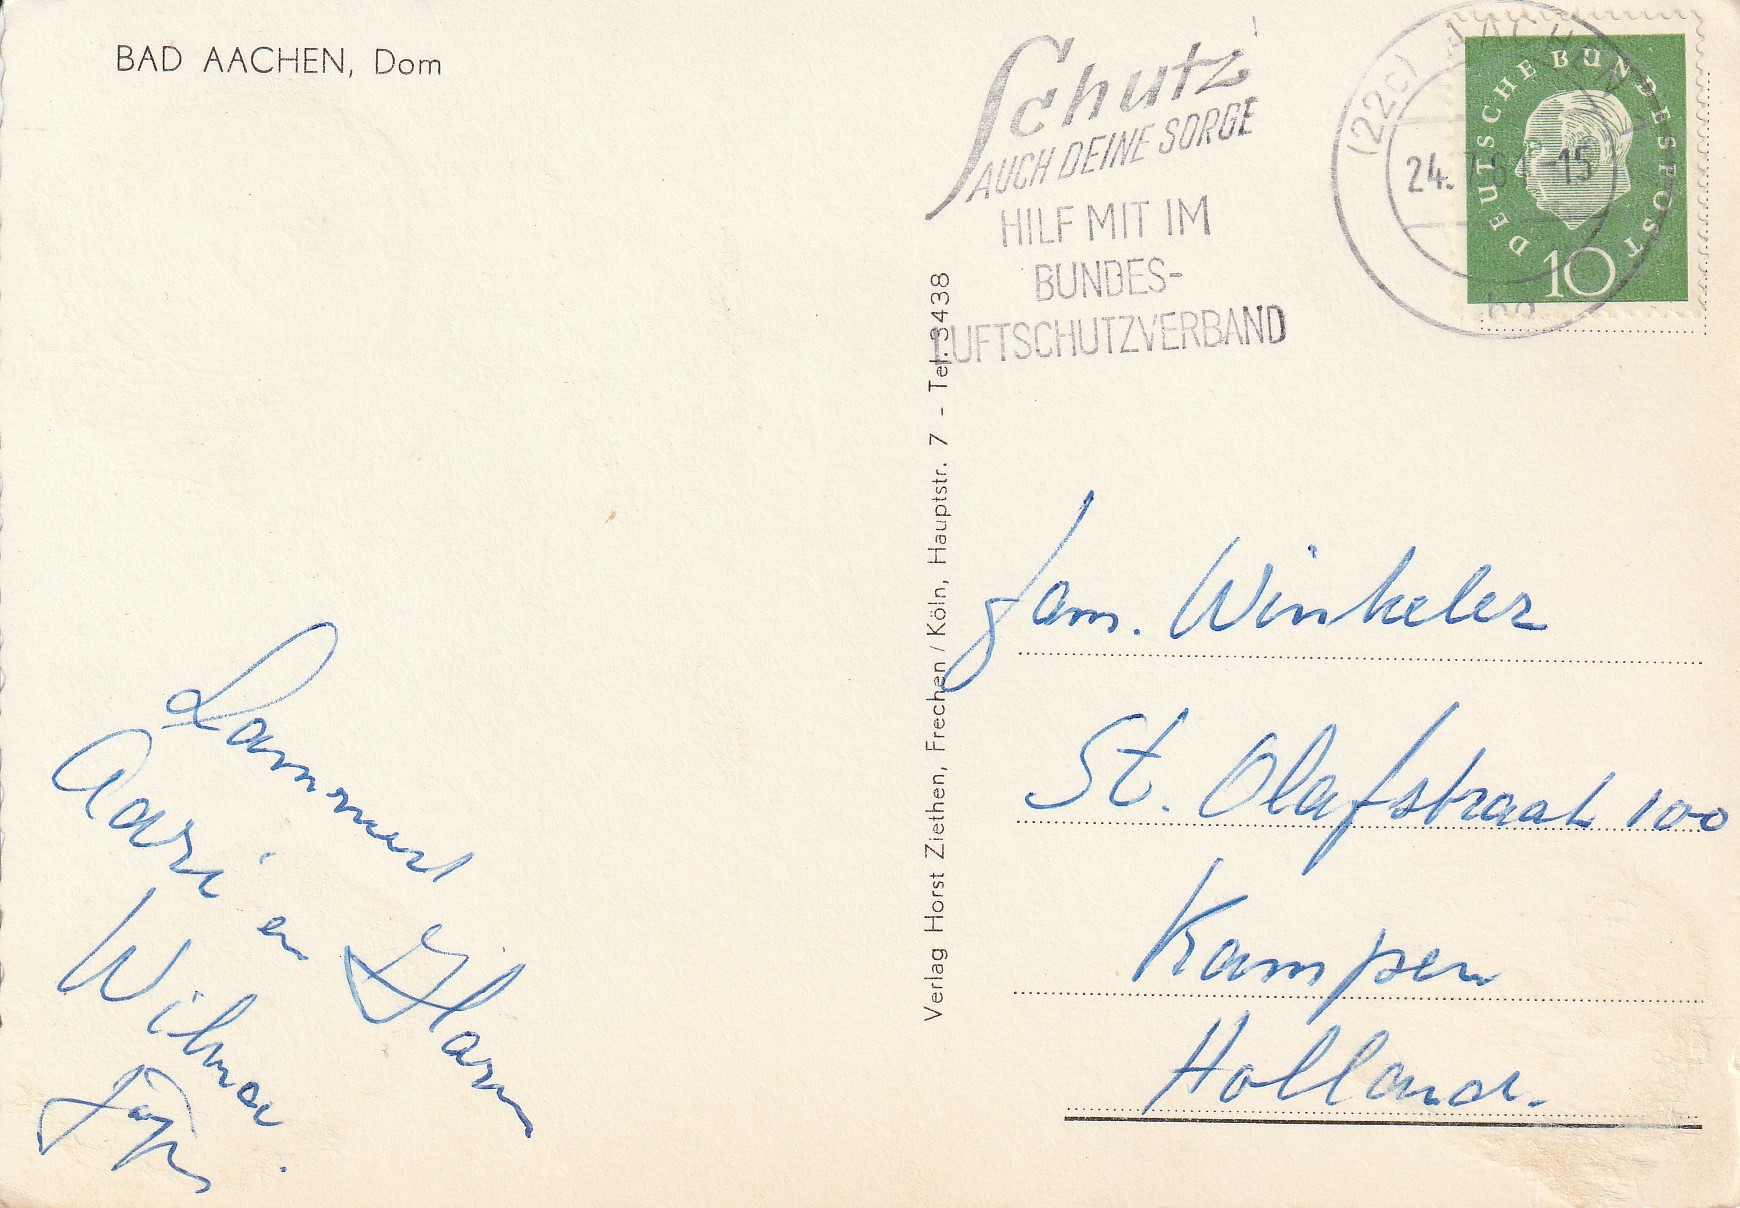 BAD AACHEN, Dom
Schutz
AUCH DEINE SORGE
HILF MIT IM
BUNDES-
LUFTSCHUTZVERBAND
(22c) AACHEN 1
24. 7.61-15
DEUTSCHE BUNDESPOST
10
Verlag Horst Ziethen, Frechen / Köln, Hauptstr. 7 - Tel. 3438
Fam. Winkeler
St. Olafstraat 100
Kampen
Holland.
Lammert
Aari en Harm
Wilma